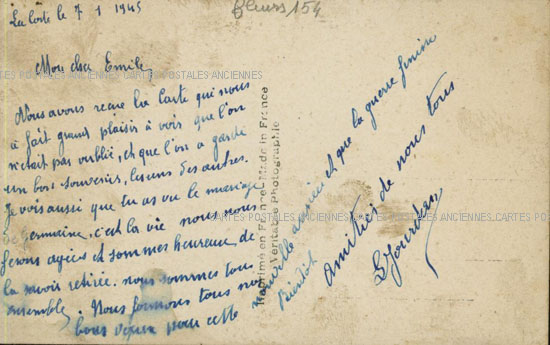 La Coste le 7 1 1945
fleurs 154
Mon cher Emile
Nous avons recue la carte qui nous
a fait grand plaisir à voir que l'on
n'était pas oublié, et que l'on a garde
un bon souvenir, les uns des autres.
Je vois aussi que tu as vu le mariage
de germaine, c'est la vie nous nous
ferons agiés et sommes heureux de
la savoir retirée. nous sommes tous
ensemble. Nous formons tous nos
bons voeux pour cette
nouvelle année et que la guerre finira
bientôt
Amitiés de nous tous
L Jourdan
Imprimé en France - Made in France
Véritable Photographie
CARTES POSTALES ANCIENNES CARTES POSTALES ANCIENNES
CARTES POSTALES ANCIENNES CARTES POSTALES ANCIENNES CARTES POSTALES